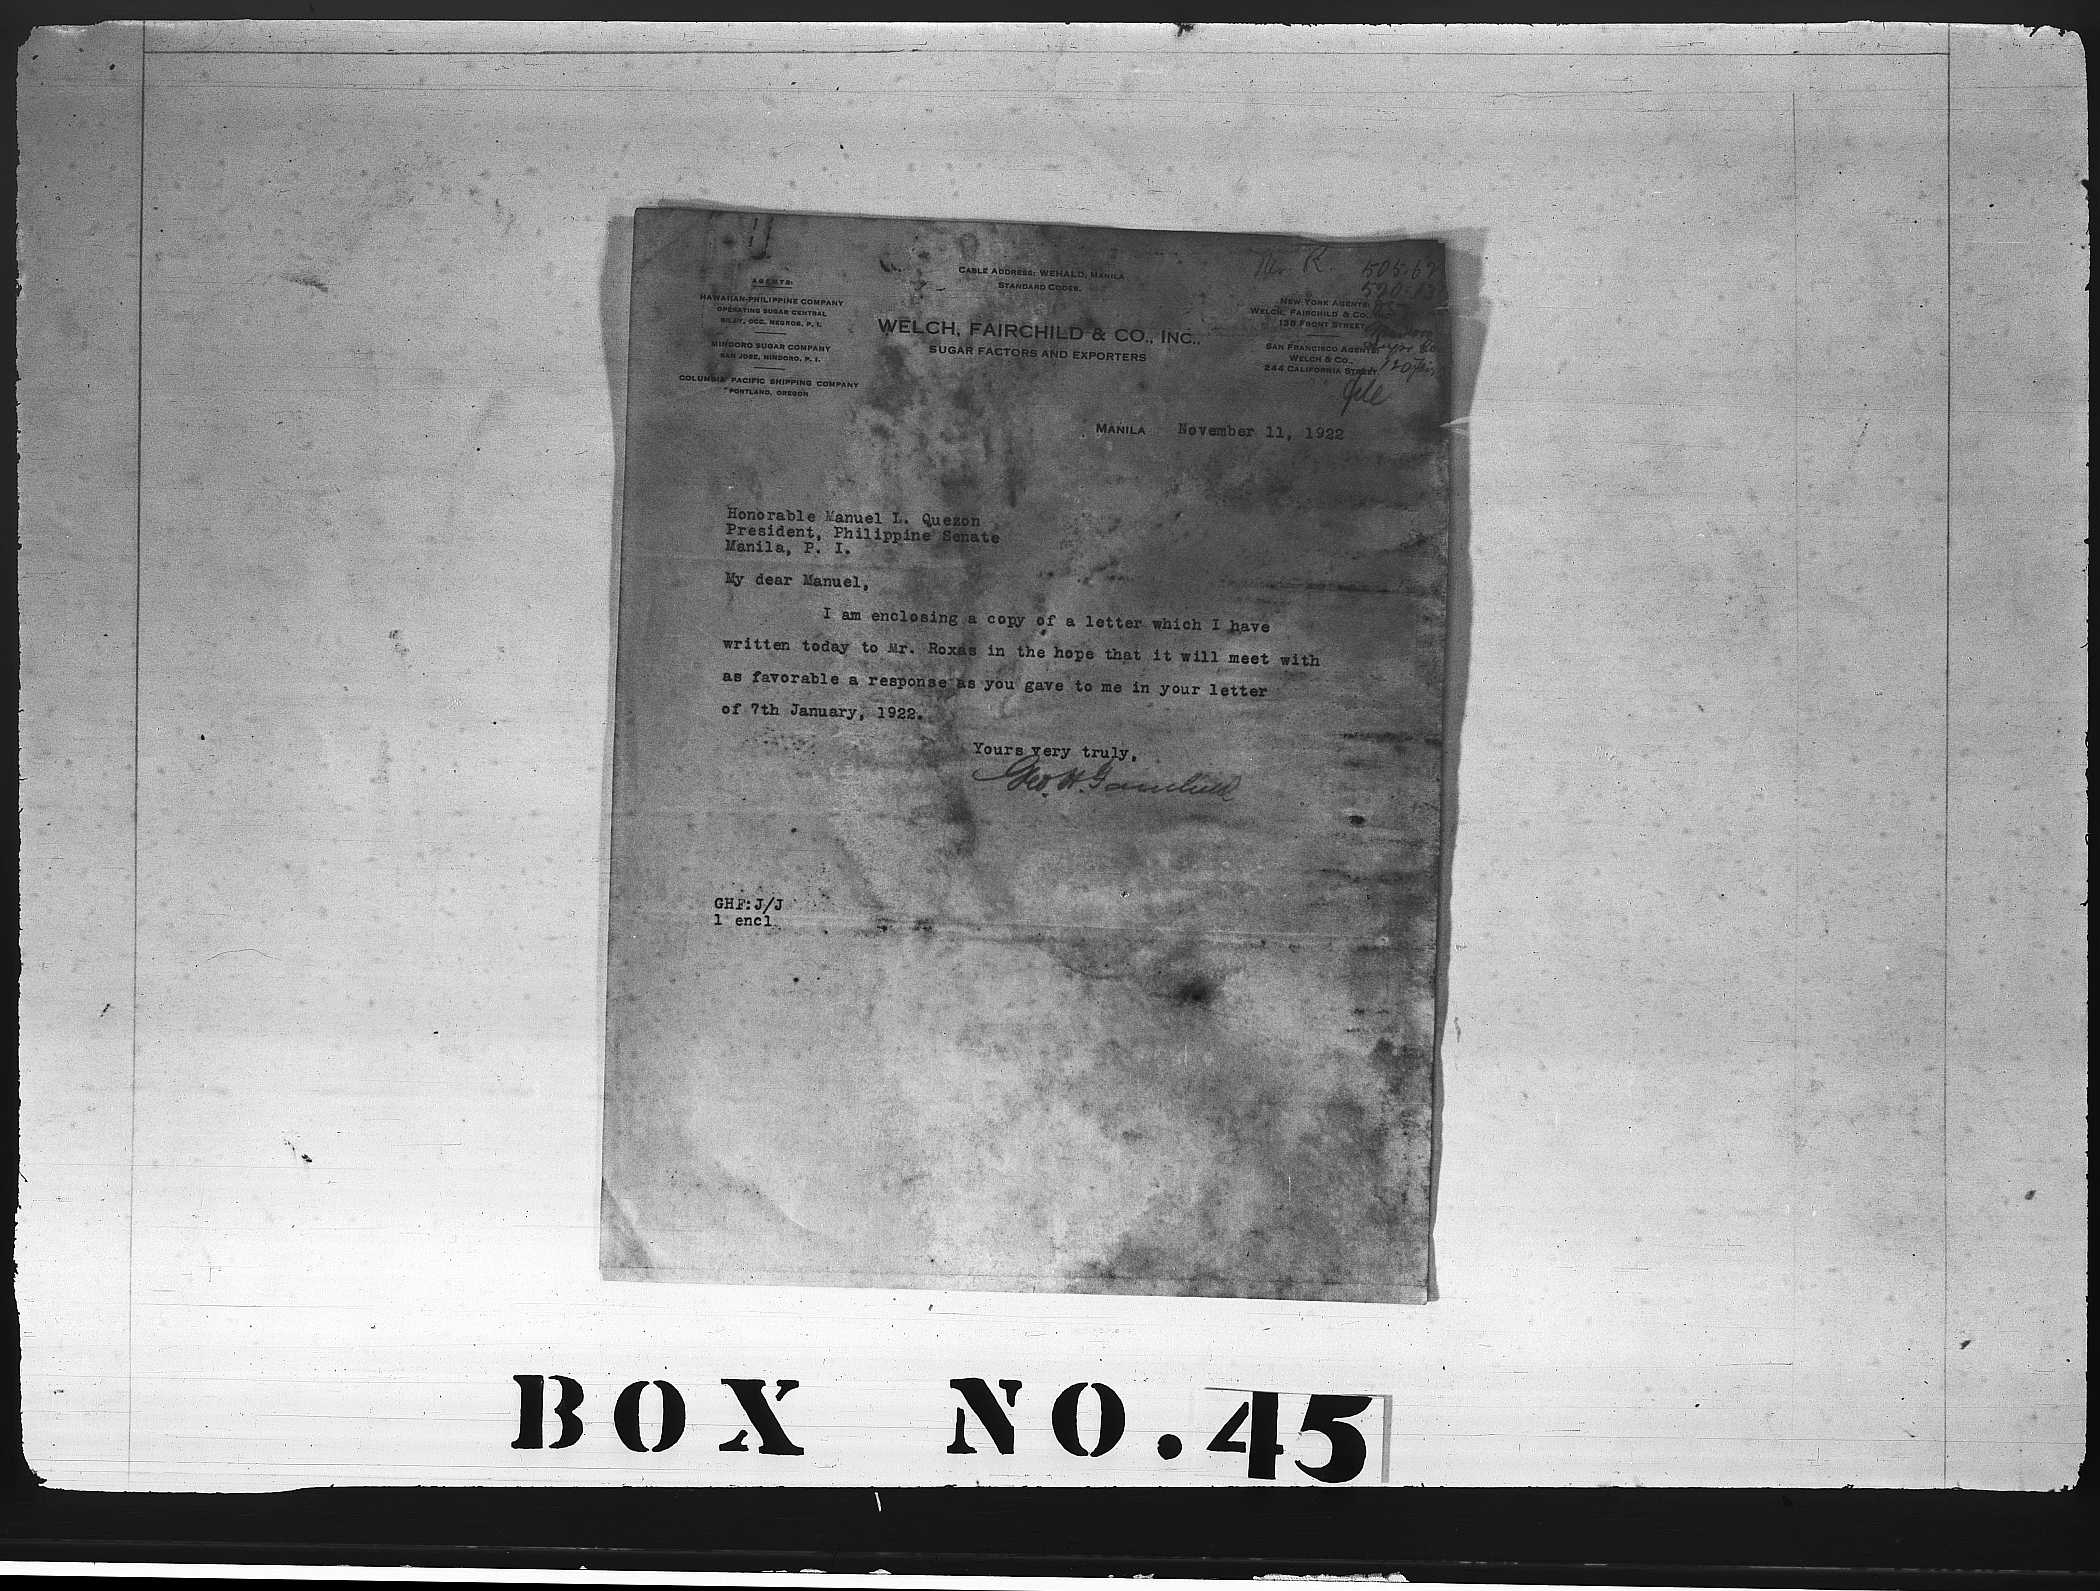 CABLE ADDRESS: WEHALD, MANILA
STANDARD CODES.
AGENTS:
HAWAIIAN-PHILIPPINE COMPANY
OPERATING SUGAR CENTRAL
SILAY, OCC. NEGROS, P. I.
MINDORO SUGAR COMPANY
SAN JOSE, MINDORO, P. I.
COLUMBIA PACIFIC SHIPPING COMPANY
PORTLAND, OREGON
WELCH, FAIRCHILD & CO., INC.,
SUGAR FACTORS AND EXPORTERS
Mr. R.
NEW YORK AGENTS:
WELCH, FAIRCHILD & CO., INC.
138 FRONT STREET
SAN FRANCISCO AGENTS:
WELCH & CO.,
244 CALIFORNIA STREET
File
MANILA November 11, 1922
Honorable Manuel L. Quezon
President, Philippine Senate
Manila, P. I.
My dear Manuel,
I am enclosing a copy of a letter which I have
written today to Mr. Roxas in the hope that it will meet with
as favorable a response as you gave to me in your letter
of 7th January, 1922.
Yours very truly,
Geo. H. Fairchild
GHF:J/J
1 encl
BOX NO. 45